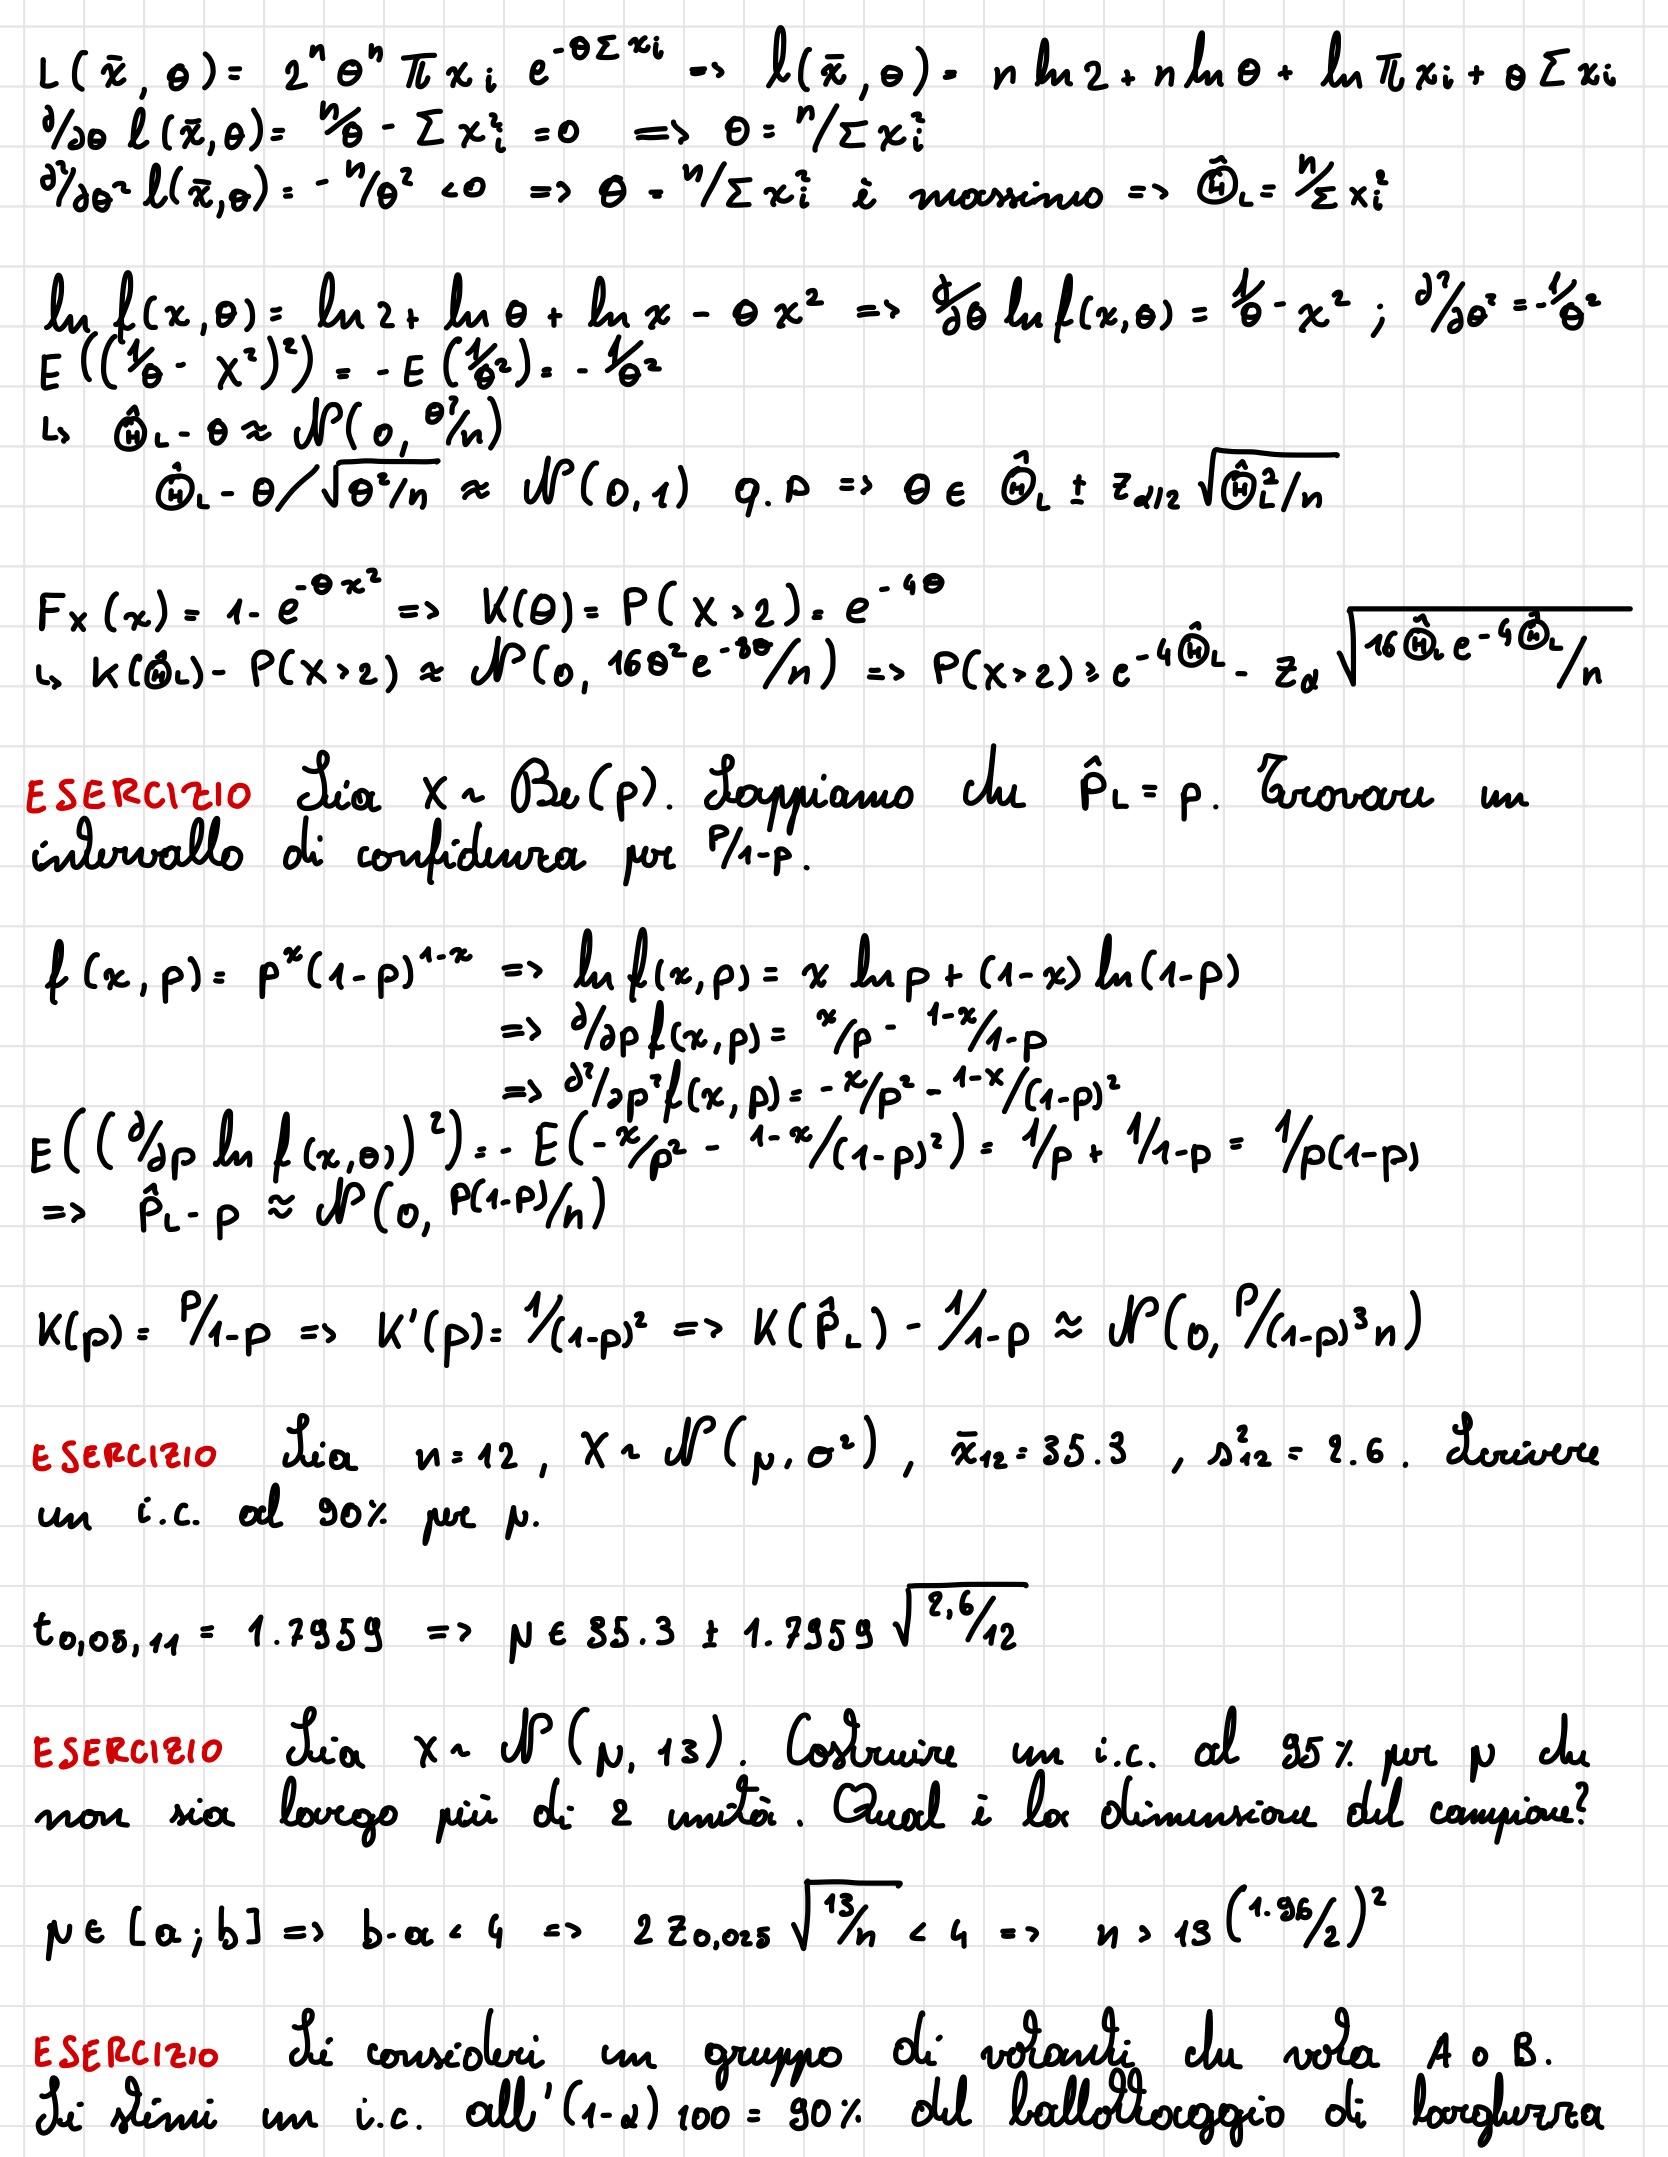 L(x̄, θ) = 2ⁿ θⁿ π xᵢ e^(-θ Σ xᵢ) => l(x̄, θ) = n ln 2 + n ln θ + ln π xᵢ + θ Σ xᵢ
∂/∂θ l(x̄, θ) = n/θ - Σ xᵢ² = 0 => θ = n/Σ xᵢ²
∂²/∂θ² l(x̄, θ) = - n/θ² < 0 => θ = n/Σ xᵢ² è massimo => Θ̂_L = n/Σ xᵢ²
ln f(x, θ) = ln 2 + ln θ + ln x - θ x² => ∂/∂θ ln f(x, θ) = 1/θ - x² ; ∂²/∂θ² = - 1/θ²
E((1/θ - X²)²) = - E(1/θ²) = - 1/θ²
↳ Θ̂_L - θ ≈ N(0, θ²/n)
Θ̂_L - θ / √(θ²/n) ≈ N(0, 1) q.p => θ ∈ Θ̂_L ± z_(α/2) √(Θ̂_L²/n)
F_X(x) = 1 - e^(-θ x²) => K(θ) = P(X > 2) = e^(-4θ)
↳ K(Θ̂_L) - P(X > 2) ≈ N(0, 16 θ² e^(-8θ)/n) => P(X > 2) ≥ e^(-4Θ̂_L) - z_α √(16 Θ̂_L e^(-4Θ̂_L)/n)
ESERCIZIO Sia X ~ Be(p). Sappiamo che P̂_L = p. Trovare un
intervallo di confidenza per p/1-p.
f(x, p) = pˣ(1-p)^(1-x) => ln f(x, p) = x ln p + (1-x) ln(1-p)
=> ∂/∂p f(x, p) = x/p - 1-x/1-p
=> ∂²/∂p² f(x, p) = - x/p² - 1-x/(1-p)²
E((∂/∂p ln f(x, θ))²) = - E(- x/p² - 1-x/(1-p)²) = 1/p + 1/1-p = 1/p(1-p)
=> P̂_L - p ≈ N(0, p(1-p)/n)
K(p) = p/1-p => K'(p) = 1/(1-p)² => K(P̂_L) - 1/1-p ≈ N(0, p/(1-p)³ n)
ESERCIZIO Sia n = 12, X ~ N(μ, σ²), x̄₁₂ = 35.3, s²₁₂ = 2.6. Scrivere
un i.c. al 90% per μ.
t_(0,05, 11) = 1.7959 => μ ∈ 35.3 ± 1.7959 √(2,6/12)
ESERCIZIO Sia X ~ N(μ, 13). Costruire un i.c. al 95% per μ che
non sia largo più di 2 unità. Qual è la dimensione del campione?
μ ∈ [a; b] => b-a < 4 => 2 z_(0,025) √(13/n) < 4 => n > 13 (1.96/2)²
ESERCIZIO Si consideri un gruppo di votanti che vota A o B.
Si stimi un i.c. all'(1-α) 100 = 90% del ballottaggio di larghezza